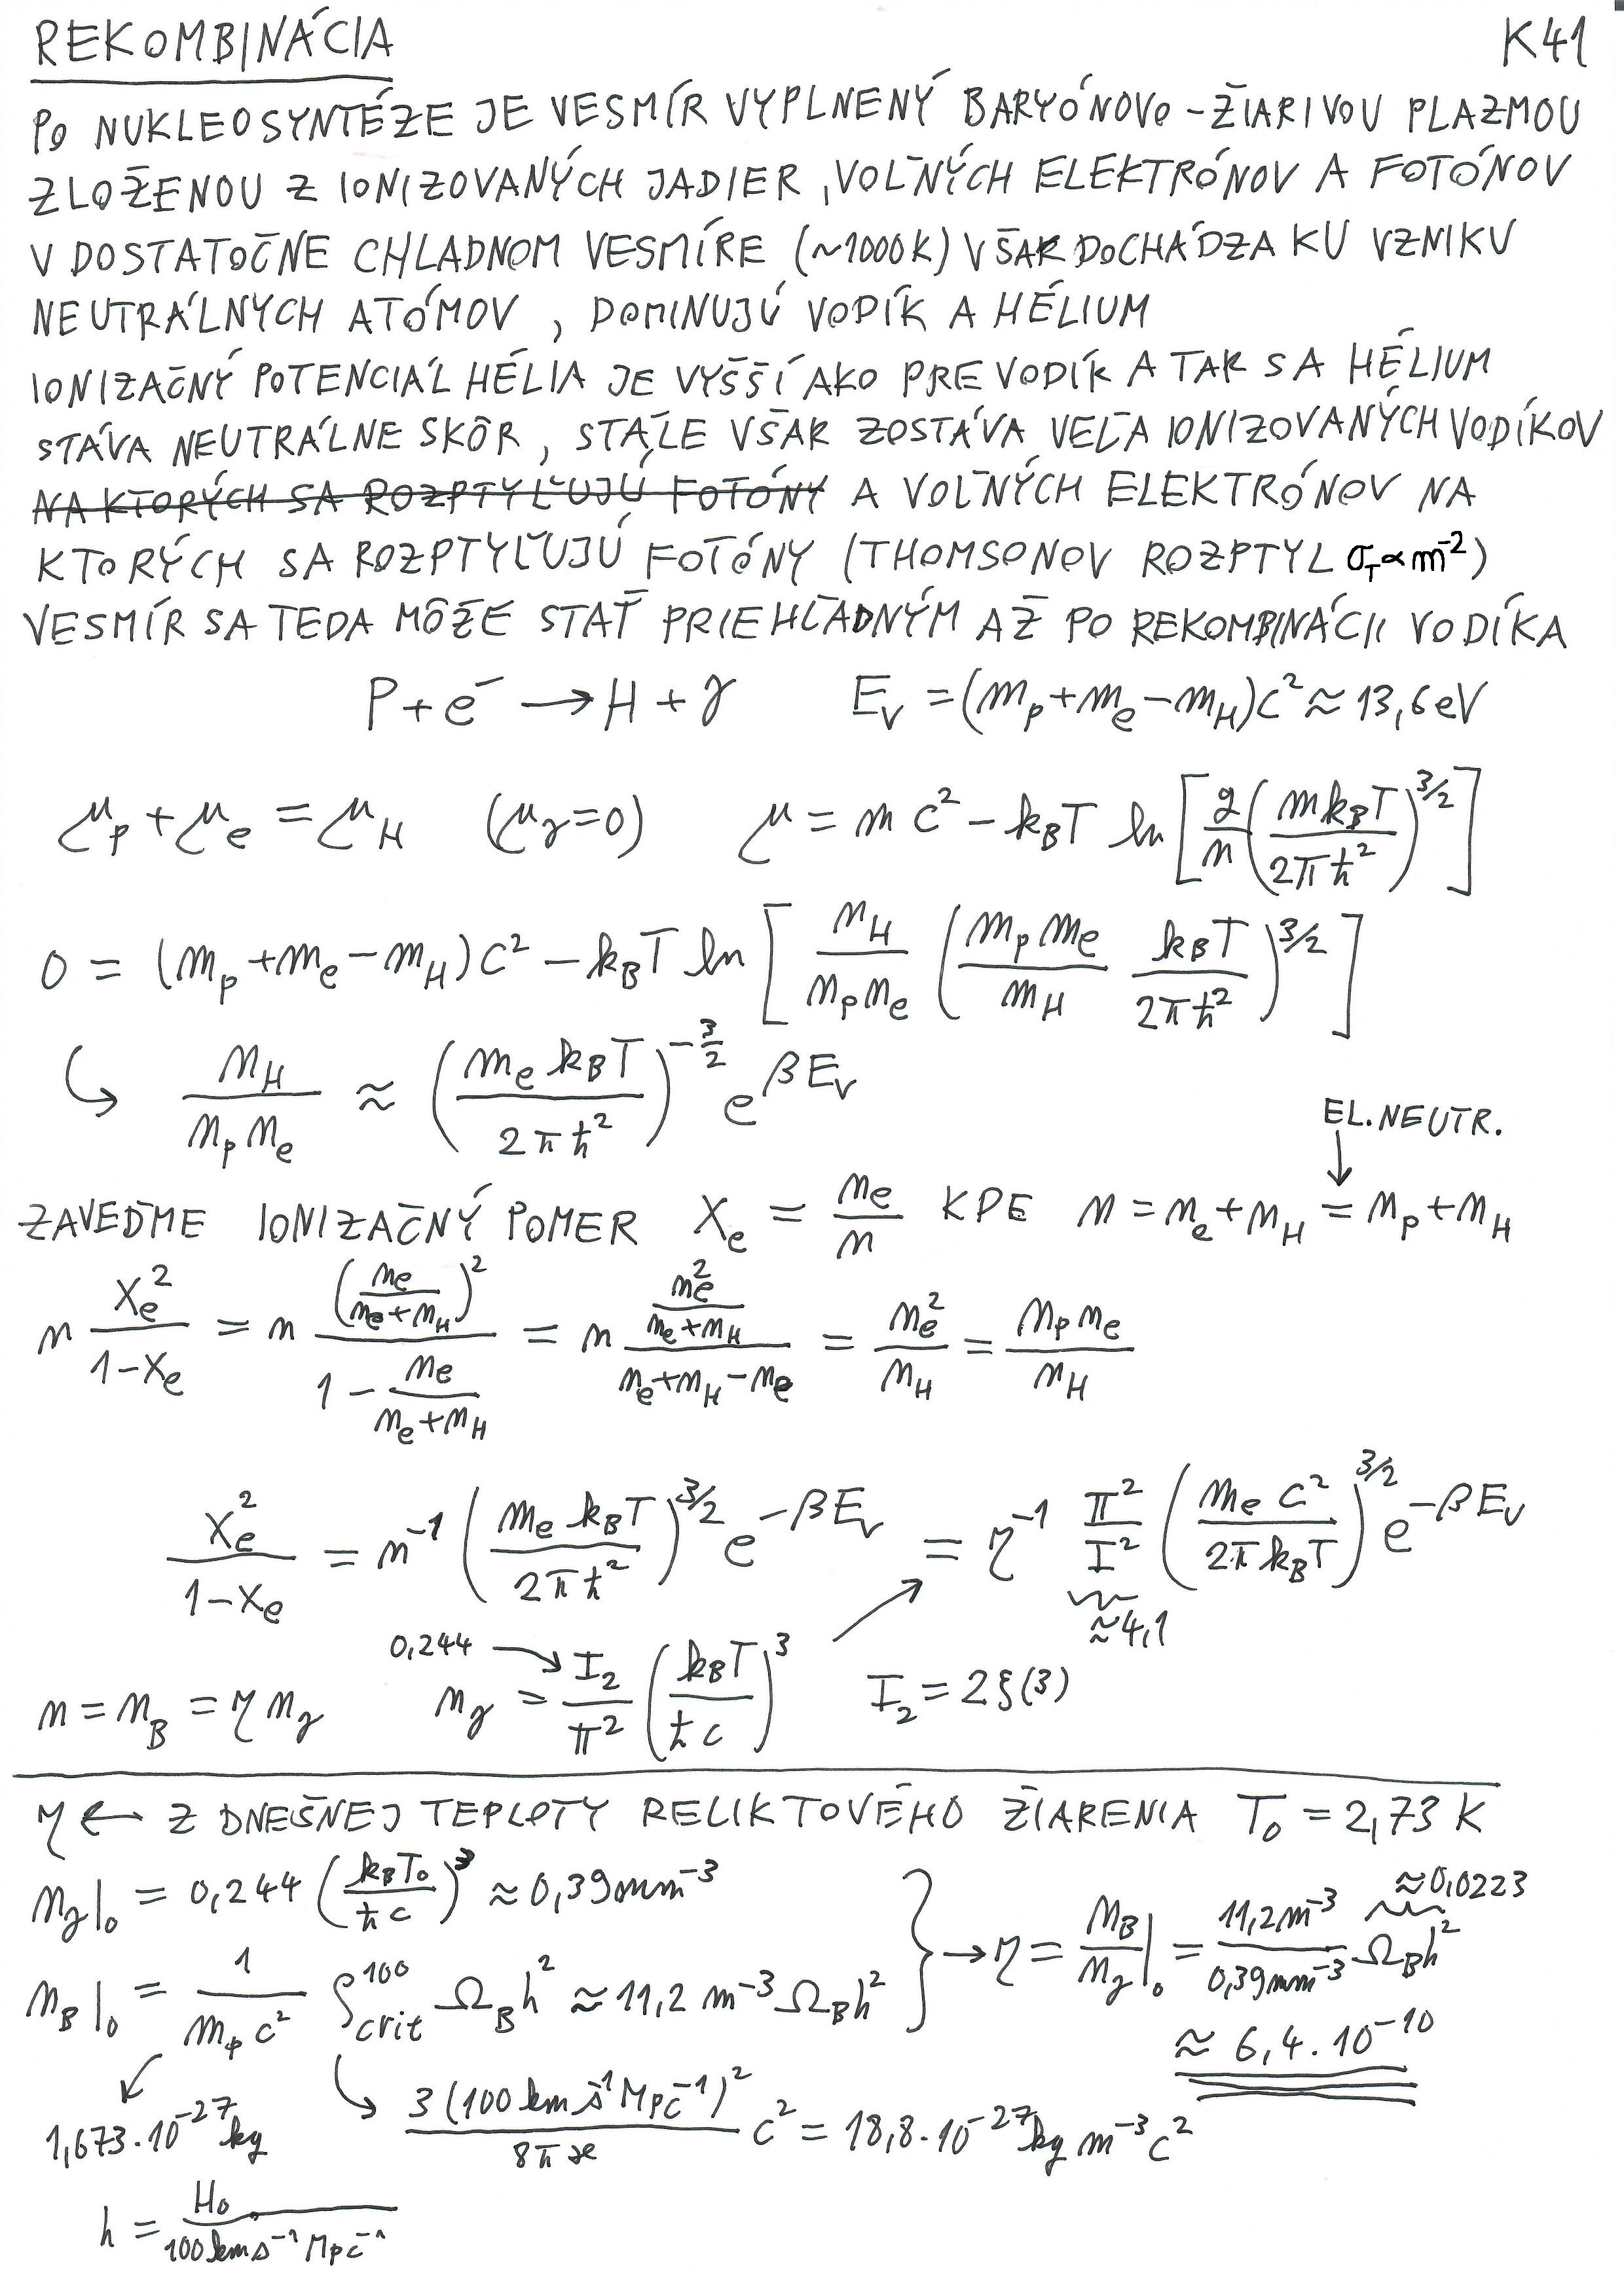 REKOMBINÁCIA K41
PO NUKLEOSYNTÉZE JE VESMÍR VYPLNENÝ BARYÓNOVO-ŽIARIVOU PLAZMOU
ZLOŽENOU Z IONIZOVANÝCH JADIER, VOĽNÝCH ELEKTRÓNOV A FOTÓNOV
V DOSTATOČNE CHLADNOM VESMÍRE (~1000K) VŠAK DOCHÁDZA KU VZNIKU
NEUTRÁLNYCH ATÓMOV, DOMINUJÚ VODÍK A HÉLIUM
IONIZAČNÝ POTENCIÁL HÉLIA JE VYŠŠÍ AKO PRE VODÍK A TAK SA HÉLIUM
STÁVA NEUTRÁLNE SKÔR, STÁLE VŠAK ZOSTÁVA VEĽA IONIZOVANÝCH VODÍKOV
NA KTORÝCH SA ROZPTYĽUJÚ FOTÓNY A VOĽNÝCH ELEKTRÓNOV NA
KTORÝCH SA ROZPTYĽUJÚ FOTÓNY (THOMSONOV ROZPTYL σ_T ∝ m^-2)
VESMÍR SA TEDA MÔŽE STAŤ PRIEHĽADNÝM AŽ PO REKOMBINÁCII VODÍKA
p + e^- → H + γ E_V = (m_p + m_e - m_H)c^2 ≈ 13,6 eV
μ_p + μ_e = μ_H (μ_γ = 0) μ = m c^2 - k_B T ln [ g/n ( m k_B T / 2πħ^2 )^3/2 ]
0 = (m_p + m_e - m_H) c^2 - k_B T ln [ n_H / n_p n_e ( m_p m_e / m_H k_B T / 2πħ^2 )^3/2 ]
↳ n_H / n_p n_e ≈ ( m_e k_B T / 2πħ^2 )^-3/2 e^βE_V
EL. NEUTR.
↓
ZAVEĎME IONIZAČNÝ POMER X_e = n_e / n KDE n = n_e + n_H = n_p + n_H
n X_e^2 / 1-X_e = n ( n_e / n_e + n_H )^2 / 1 - n_e / n_e + n_H = n n_e^2 / n_e + n_H / n_e + n_H - n_e = n_e^2 / n_H = n_p n_e / n_H
X_e^2 / 1-X_e = n^-1 ( m_e k_B T / 2πħ^2 )^3/2 e^-βE_V = η^-1 π^2 / I^2 ( m_e c^2 / 2π k_B T )^3/2 e^-βE_V
≈4,1
0,244 →
n = n_B = η n_γ n_γ = I_2 / π^2 ( k_B T / ħ c )^3 I_2 = 2ξ(3)
η ← Z DNEŠNEJ TEPLOTY RELIKTOVÉHO ŽIARENIA T_0 = 2,73 K
n_γ|_0 = 0,244 ( k_B T_0 / ħ c )^3 ≈ 0,39 mm^-3
n_B|_0 = 1 / m_p c^2 ρ_crit^100 Ω_B h^2 ≈ 11,2 m^-3 Ω_B h^2
} → η = n_B / n_γ |_0 = 11,2 m^-3 / 0,39 mm^-3 Ω_B h^2
≈0,0223
≈ 6,4 . 10^-10
1,673 . 10^-27 kg
↳ 3 (100 km s^-1 Mpc^-1)^2 / 8πϰ c^2 = 18,8 . 10^-27 kg m^-3 c^2
h = H_0 / 100 km s^-1 Mpc^-1